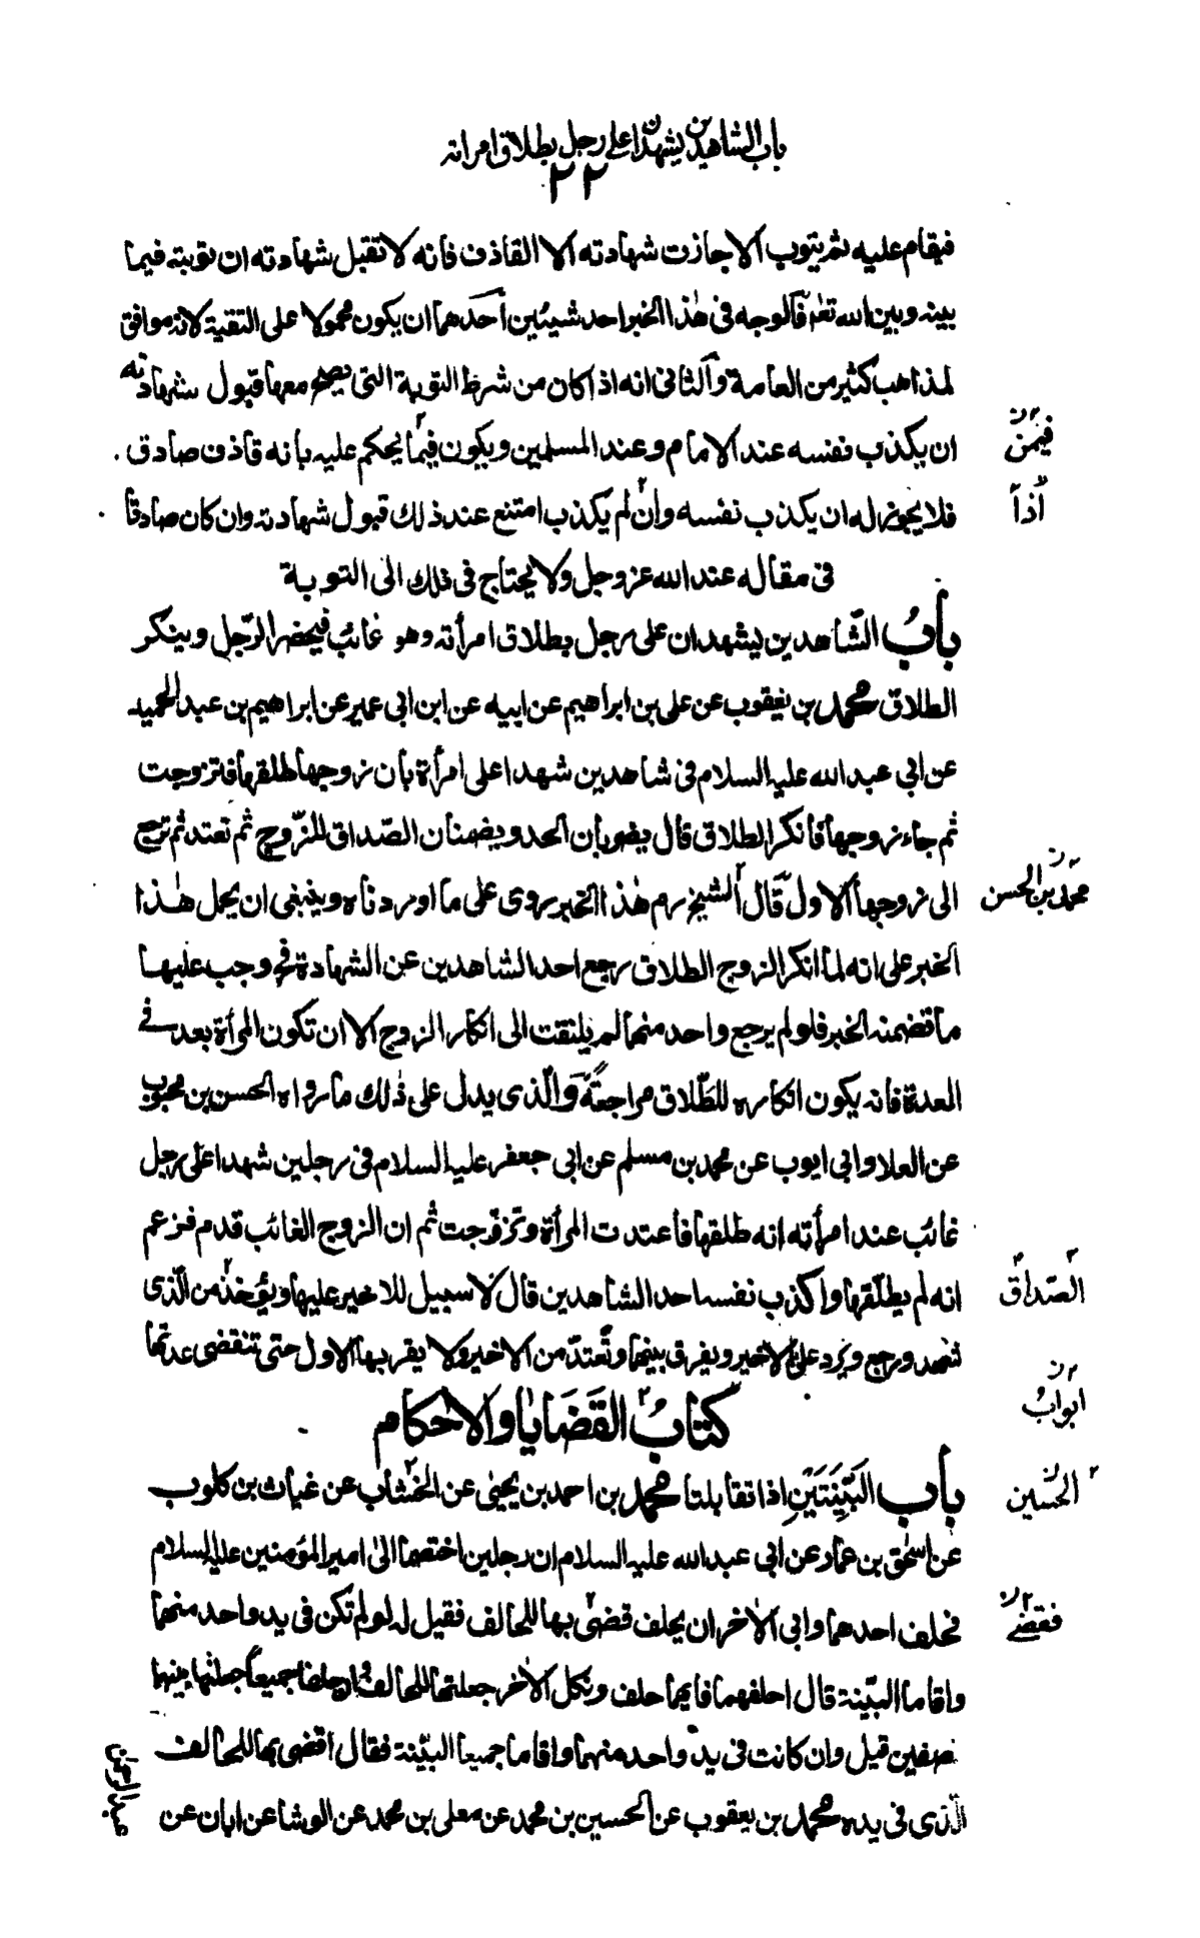 باب الشاهدين يشهدان على رجل بطلاق امراته
٢٢
فيقام عليه ثم يتوب الا جازت شهادته الا القاذف فانه لا تقبل شهادته ان توبته فيما
بينه وبين الله تعٰ فالوجه فى هٰذا الخبر احد شيئين أحدهما ان يكون محمولا على التقية لانه موافق
لمذاهب كثير من العامة والثانى انه اذا كان من شرط التوبة التى يصح معها قبول شهادته
ان يكذب نفسه عند الامام وعند المسلمين ويكون فيما يحكم عليه بانه قاذف صادق
فيمن ن
فلا يجوز له ان يكذب نفسه وان لم يكذب امتنع عند ذلك قبول شهادته وان كان صادقا
اذا
فى مقاله عند الله عز وجل ولا يحتاج فى ذلك الى التوبة
بابُ الشّاهدين يشهدان على رجل بطلاق امرأته وهو غائب فيحضر الرّجل وينكر
الطلاق محمد بن يعقوب عن على بن ابراهيم عن ابيه عن ابن ابى عمير عن ابراهيم بن عبد الحميد
عن ابى عبد الله عليه السلام فى شاهدين شهدا على امرأة بان زوجها طلقها فتزوجت
ثم جاء زوجها فانكر الطلاق قال يضربان الحد ويضمنان الصّداق للزّوج ثم تعتد ثم ترجع
الى زوجها الاول قال الشيخ رم هٰذا الخبر يروى على ما اوردناه وينبغى ان يحمل هٰذا
محمد بن الحسن ن
الخبر على انه لما انكر الزوج الطلاق رجع احد الشاهدين عن الشهادة فح وجب عليهما
ما تضمنه الخبر فلو لم يرجع واحد منهما لم يلتفت الى انكار الزوج الا ان تكون المرأة بعد فى
العدة فانه يكون انكاره للطّلاق مراجعةً والّذى يدل على ذٰلك ما رواه الحسن بن محبوب
عن العلا وابى ايوب عن محمد بن مسلم عن ابى جعفر عليه السلام فى رجلين شهدا على رجل
غائب عند امرأته انه طلقها فاعتدت المرأة وتزوّجت ثم ان الزوج الغائب قدم فزعم
انه لم يطلّقها واكذب نفسه احد الشاهدين قال لا سبيل للاخير عليها ويؤخذ من الّذى
الصّداق
شهد ورجع ويرد على الاخير ويفرق بينهما وتعتدّ من الاخير ولا يقربها الاول حتى تنقضى عدتها
ابوابُ ن
كتابُ القَضَايا والاحكام
باب البَيِّنَتَيْنِ اذا تقابلتا محمد بن احمد بن يحيى عن الخشّاب عن غياث بن كلوب
الحسين ن
عن اسحٰق بن عمار عن ابى عبد الله عليه السلام ان رجلين اختصما الى امير المؤمنين عليه السلام
فحلف احدهما وابى الاٰخر ان يحلف قضٰى بها للحالف فقيل له لو لم تكن فى يد واحد منهما
فقضى ن
واقاما البيّنة قال احلفهما فايهما حلف ونكل الاٰخر جعلتها للحالف وان حلفا جميعا جعلتها بينهما
نصفين قيل وان كانت فى يد واحد منهما واقاما جميعا البيّنة فقال اقضى بها للحالف
الّذى فى يده محمد بن يعقوب عن الحسين بن محمد عن معلى بن محمد عن الوشا عن ابان عن
عبد الرحمن